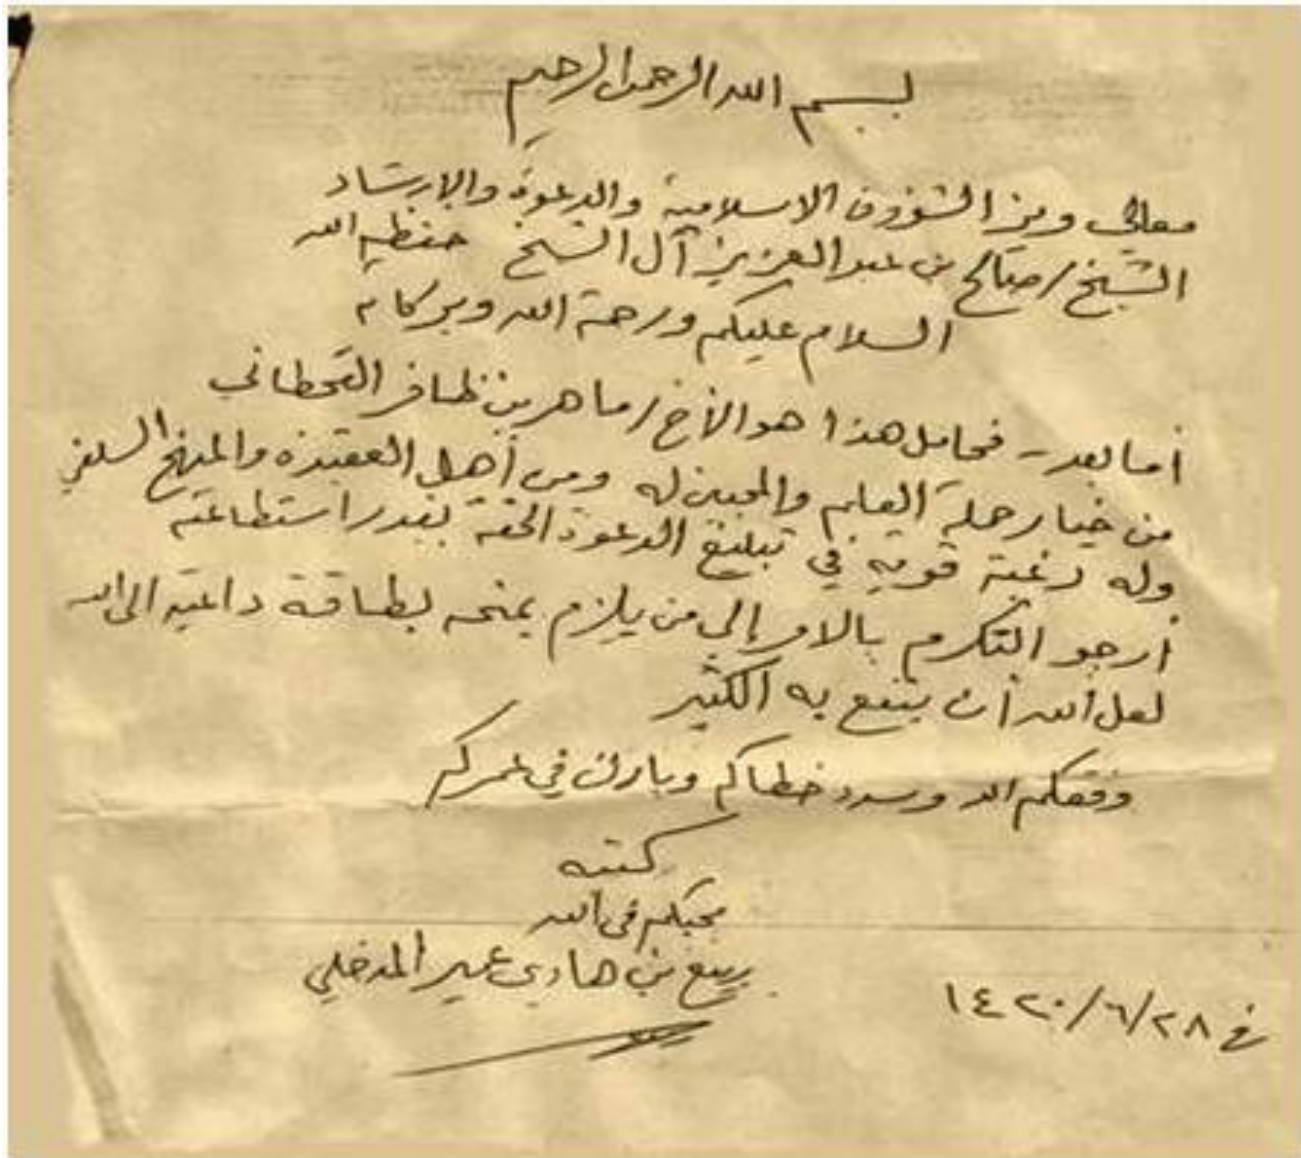 بسم الله الرحمن الرحيم
معالي وزير الشؤون الاسلامية والدعوة والارشاد
الشيخ/صالح بن عبد العزيز آل الشيخ حفظه الله
السلام عليكم ورحمة الله وبركاته
أما بعد - فحامل هذا هو الأخ/ماهر بن ظافر القحطاني
من خيار حملة العلم والمحبين له ومن أهل العقيدة والمنهج السلفي
وله رغبة قوية في تبليغ الدعوة الحقة بقدر استطاعته
أرجو التكرم بالامر إلى من يلزم بمنحه بطاقة داعية الى الله
لعل الله أن ينفع به الكثير
وفقكم الله وسدد خطاكم وبارك في عمركم
كتبه
محبكم في الله
ربيع بن هادي عمير المدخلي
في ١٤٢٠/٦/٢٨